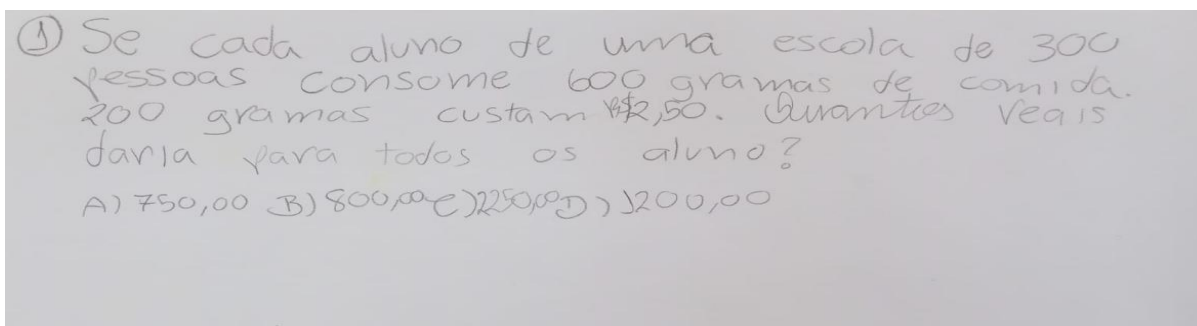 ① Se cada aluno de uma escola de 300
pessoas consome 600 gramas de comida.
200 gramas custam R$2,50. Quantos reais
daria para todos os aluno?
A) 750,00 B) 800,00 C) 2250,00 D) 1200,00